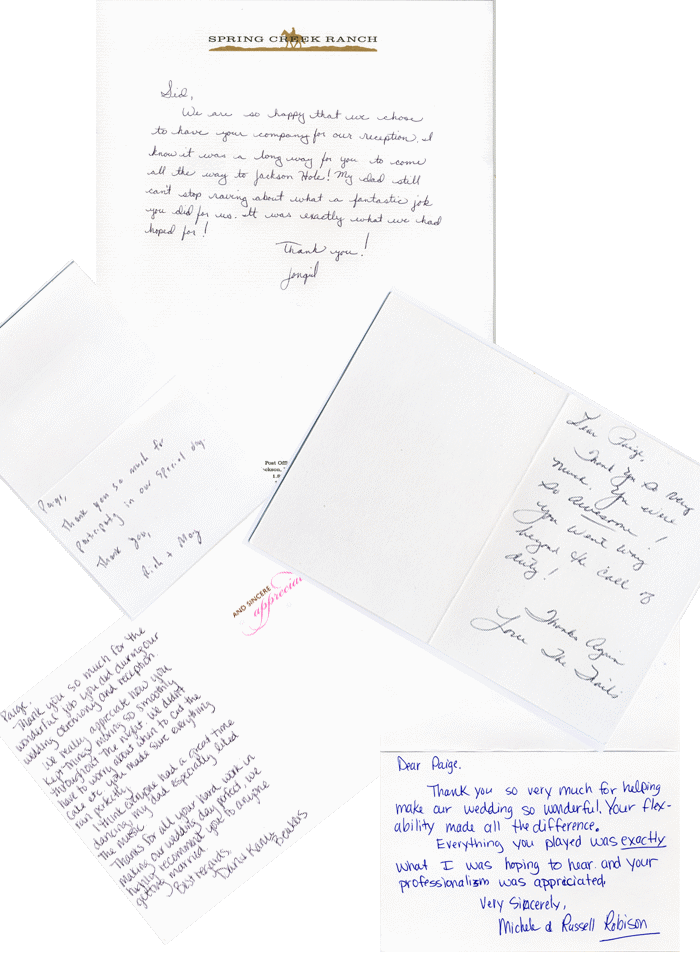 SPRING CREEK RANCH
Sid,
We are so happy that we chose
to have your company for our reception. I
know it was a long way for you to come
all the way to Jackson Hole! My dad still
can't stop raving about what a fantastic job
you did for us. It was exactly what we had
hoped for!
Thank you!
Post Offi
ckson,
Paige,
Thank you so much for
participating in our special day.
Thank you,
Rich +
Dear Paige,
Thank you so very
much. You were
so awesome!
You went way
beyond the call of
duty!
Thanks Again
Love The
AND SINCERE
appreciac
Paige,
Thank you so much for the
wonderful job you did during our
wedding ceremony and reception.
We really appreciate how you
kept things moving so smoothly
throughout the night. We didn't
have to worry about when to cut the
cake etc. you made sure everything
ran perfectly.
I think everyone had a great time
dancing; my dad especially liked
the music.
Thanks for all your hard work in
making our wedding day perfect, we
highly recommend you to anyone
getting married.
Best regards,
Dear Paige,
Thank you so very much for helping
make our wedding so wonderful. Your flex-
ability made all the difference.
Everything you played was exactly
what I was hoping to hear. and your
professionalism was appreciated.
Very Sincerely,
Michele & Russell Robison